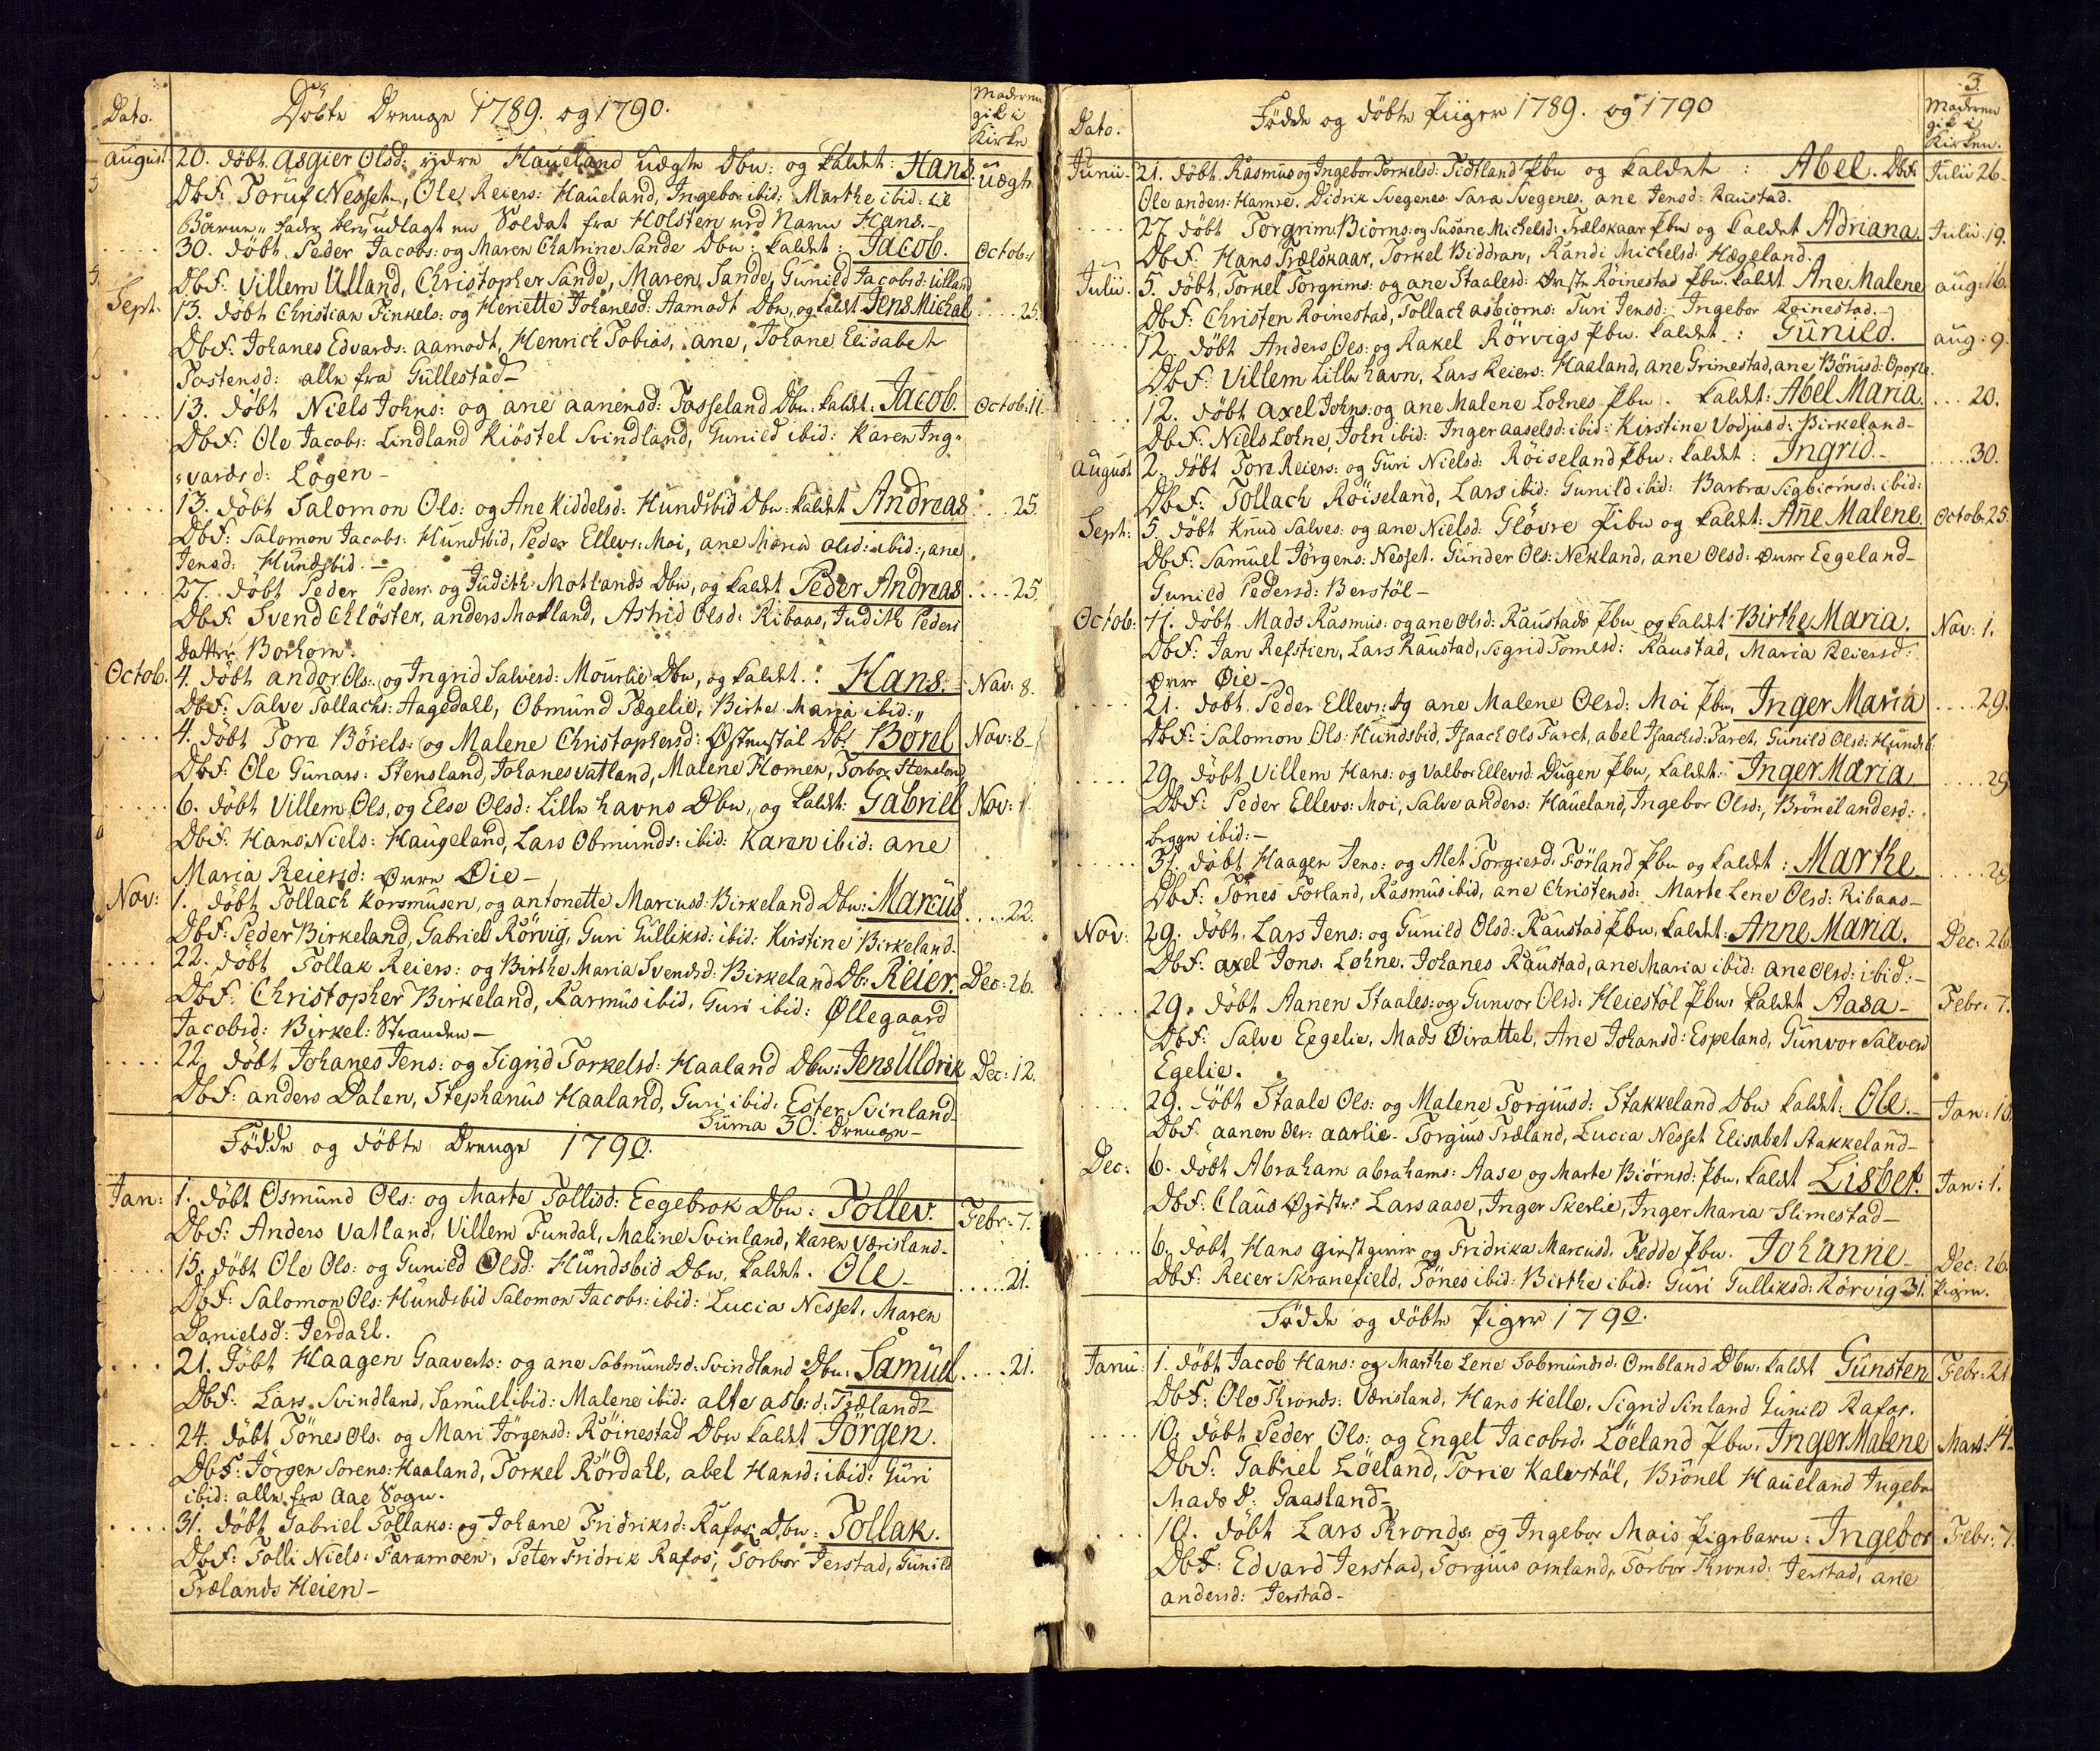 Dato.
Døbte Drenge 1789. og 1790.
Moderen
gik i
Kirke
August 20. døbt Asgier Olsd: ydre Haueland Uægte Dbn: og kaldet: Hans. Uægte
DbF: Toruf Nesset, Ole Reiers: Haueland, Ingebor ibid: Marthe ibid: til
Barne fader blev udlagt en Soldat fra Holsten ved Navn Hans.
30. døbt Peder Jacobs: og Maren Chatrine Sande Dbn: kaldet: Jacob. Octob:
DbF: Villem Ulland, Christopher Sande, Maren Sande, Gunild Jacobsd: Ulland
Sept. 13. døbt Christian Finkels: og Heriette Johanesd: Aamodt Dbn, og kaldt Jens Michal 25.
DbF: Johanes Edvards: aamodt, Henrich Tobias, ane, Johane Elisabet
Tostensd: alle fra Gullestad
13. døbt Niels Johns: og ane aanensd: Tosseland Dbn: kaldt: Jacob. Octob: 11.
DbF: Ole Jacobs: Lindland Kiöstel Svindland, Gunild ibid: Karen Ing=
=vardsd: Logen
13. døbt Salomon Ols: og Ane Kiddelsd: Hundsbid Dbn: kaldet Andreas 25.
DbF: Salomon Jacobs: Hundsbid, Peder Ellevs: Moi, ane Maria olsd: ibid:, ane
Jensd: Hundsbid.
27. døbt Peder Peders: og Judith Motlands Dbn, og kaldet Peder Andreas 25.
DbF: Svend Chlöster, anders Motland, Astrid Olsd: Ribaas, Judith Peders
Datter Borhom.
Octob. 4. døbt andor Ols: og Ingrid Salvesd: Mourlie Dbn, og kaldet: Hans. Nav: 8.
DbF: Salve Tollachs: Aagedall, Obmund Tægelie, Birte Maria ibid:
4. døbt Tore Börels: og Malene Christophersd: Østenstal Db: Borel Nav: 8
DbF: Ole Gunars: Stensland, Johanes Vatland, Malene Flomen, Torbor Stensland
6. døbt Villem Ols, og Else Olsd: Lille havns Dbn, og kaldt: Gabriel Nov:
DbF: Hans Niels: Haugeland, Lars Obmunds: ibid: Karen ibid: ane
Maria Reiersd: Øvre Øie
Nov: 1. døbt Tollach Korsmusen, og antonette Marcusd: Birkeland Dbn: Marcus 22.
DbF: Peder Birkeland, Gabriel Rörvig, Guri Gulliksd: ibid: Kirstine Birkeland
22. døbt Tollak Reiers: og Birthe Maria Svendsd: Birkeland Db: Reier. Dec: 26.
DbF: Christopher Birkeland, Rasmus ibid, Guri ibid: Øllegaard
Jacobsd: Birkel: Stranden
22. døbt Johanes Jens: og Sigrid Torkelsd: Haaland Dbn: Jens Uldrik Dec: 12.
DbF: anders Dalen, Stephanus Haaland, Guri ibid: Ester Svinland
Suma 30. Drenge
Fødde og døbte Drenge 1790.
Jan: 1. døbt Osmund Ols: og Marte Tollisd: Eegebrok Dbn: Tollev. Febr: 7.
DbF: Anders Vatland, Villem Fundal, Maline Svinland, Karen Værisland
15. døbt Ole Ols: og Gunild Olsd: Hundsbid Dbn, kaldet. Ole 21.
DbF: Salomon Ols: Hundsbid Salomon Jacobs: ibid: Lucia Nesset, Maren
Danielsd: Jerdahl.
21. døbt Haagen Gaaverts: og ane Sobmundsd: Svindland Dbn: Samuel 21.
DbF: Lars Svindland, Samuel ibid: Malene ibid: alte asb: d: Tidland
24. døbt Tönes Ols: og Mari Jörgensd: Röinestad Dbn kaldet Jörgen.
DbF: Jörgen Sorens: Haaland, Torkel Rördahl, abel Hansd: ibid: Guri
ibid: alle fra Aae Sogn.
31. døbt Gabriel Tollaks: og Johane Fridriksd: Rafos Dbn: Tollak.
DbF: Tolli Niels: Faramoen, Peter Fridrik Rafos, Torbor Jerstad, Gunild
Trælands Heien
3.
Dato.
Fødde og døbte Piiger 1789. og 1790
Moderen
gik i
Kirken.
Junii. 21. døbt Rasmus og Ingebor Torkelsd: Tidtland Pbn og kaldet: Abel. DbF: Julii 26
Ole anders: Hamre. Didrik Svegenes Sara Svegenes. ane Jensd: Raustad.
27. døbt Torgrim Biorns: og Susane Michelsd: Trælskaar Pbn og kaldet Adriana. Julii: 19.
DbF: Hans Trælskaar, Torkel Biddran, Randi Michelsd: Hægeland.
Julii. 5. døbt, Torkel Torgrims: og ane Staalesd: Øvste Röinestad Pbn. kaldt. Ane Malene aug: 16.
DbF: Christen Roinestad, Tollach asbiorns: Turi Jensd: Ingebor Roinestad.
12. døbt Anders Ols: og Rakel Rörvigs Pbn. kaldet: Gunild. aug: 9.
DbF: Villem Lille havn, Lars Reiers: Haaland, ane Grimestad, ane Bönusd: Opofte
12. døbt Axel Johns: og ane Malene Lohnes Pbn. kaldet: Abel Maria. 20.
DbF: Niels Lohne, John ibid: Inger Aaselsd: ibid: Kirstine Vodjusd: Birkeland
August 2. døbt Tore Reiers: og Guri Nielsd: Röiseland Pbn: kaldet: Ingrid. 30.
DbF: Tollach Röiseland, Lars ibid: Gunild ibid: Barbra Sigbiornsd: ibid:
Sept: 5. døbt Knud Salves: og ane Nielsd: Glövre Pibn og kaldet: Ane Malene. Octob: 25.
DbF: Samuel Jörgens: Nesset. Gunder Ols: Nekland, ane Olsd: Øvre Eegeland
Gunild Pedersd: Berstöl
Octob: 11. døbt Mads Rasmus: og ane olsd: Raustads Pbn og kaldet Birthe Maria. Nav: 1.
DbF: Jan Refstien, Lars Raustad, Sigrid Tomesd: Raustad, Maria Reiersd:
Øvre Øie
21. døbt Peder Ellevs: og ane Malene Olsd: Moi Pbn, Inger Maria 29.
DbF: Salomon Ols: Hundsbid, Isaach Ols Taret, abel Isaachsd: Taret, Gunild Olsd: Hundsb:
29. døbt Villem Hans: og Valbor Ellevsd: Dugen Pbn, kaldet: Inger Maria 29
DbF: Peder Ellevs: Moi, Salve anders: Haueland, Ingebor Olsd:, Brönel andersd:
begge ibid:
31. døbt Haagen Jens: og Alet Torgiersd: Förland Pbn og kaldet: Marthe 29
DbF: Tönes Förland, Rasmus ibid, ane Christensd: Marte Lene Olsd: Ribaas
Nov: 29. døbt. Lars Jens: og Gunild Olsd: Raustad Pbn, kaldet: Anne Maria. Dec: 26
DbF: axel Jons: Lohne, Johanes Raustad, ane Maria ibid: ane Olsd: ibid:
29. døbt Aanen Staales: og Gunvor Olsd: Heiestöl Pbn: kaldet Aasa Febr: 7.
DbF: Salve Eegelie, Mads Öirattel, Ane Johansd: Espeland, Gunvor Salvesd
Egelie.
29. døbt Staale Ols: og Malene Torgiusd: Stakkeland Dbn kaldet: Ole. Jan: 10
DbF: aanen Ols: aarlie. Torgius Træland, Lucia Nesset Elisabet Stakkeland
Dec: 6. døbt Abraham abrahams: Aase og Marte Biørnsd: Pbn, kaldt Lisbet. Jan: 1.
DbF: Claus Lars aase, Inger Skerlie, Inger Maria Slimestad
6. døbt Hans giestgiver og Fridrika Marcusd: Fedde Pbn. Johanne Dec: 26.
DbF: Reier Skranefield, Tönes ibid: Birthe ibid: Guri Gulliksd: Rörvig 31. Piger.
Fødde og døbte Piger 1790.
Janu: 1. døbt Jacob Hans: og Marthe Lene Sobmundsd: Ombland Dbn: kaldet Gunsten Febr: 21
DbF: Ole Tronds: Værisland, Hans Helle, Sigrid Sinland Gunild Rafos.
10. døbt Peder Ols: og Engel Jacobsd: Löeland Pbn, Inger Malene Mart: 14
DbF: Gabriel Löeland, Torie Kalvstäl, Brönel Haueland Ingebor
Mads D: Gaasland
10. døbt Lars Tronds: og Ingebor Mais Pigebarn: Ingebor Febr: 7.
DbF: Edvard Jerstad, Torgius omland, Torbor Tronsd: Jerstad, ane
andersd: Jerstad